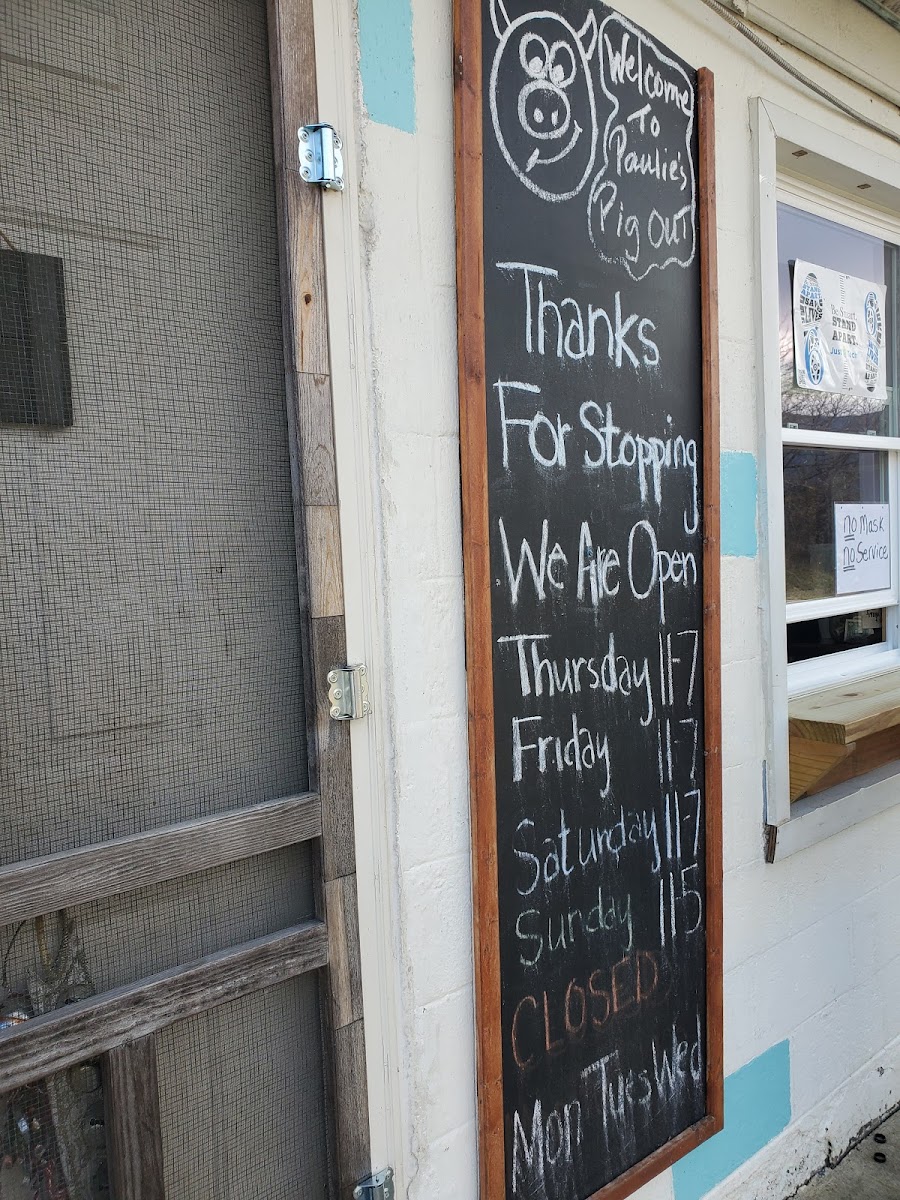 Welcome
To
Paulie's
Pig Out
Thanks
For Stopping
We Are Open
Thursday 11-7
Friday 11-7
Saturday 11-7
Sunday 11-5
CLOSED
Mon Tues Wed
Be Smart.
STAND
APART.
no Mask
no Service